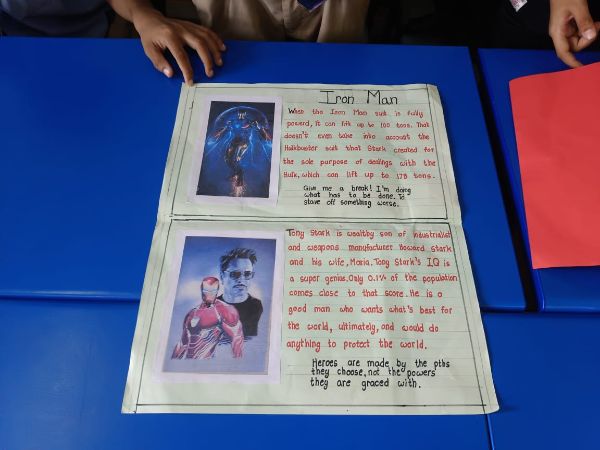 Iron Man
When the Iron Man suit is fully
powerd, it can lift up to 100 tons. That
doesn't even take into account the
Hulkbuster suit that Stark created for
the sole purpose of dealings with the
Hulk, which can lift up to 175 tons.
Give me a break! I'm doing
what has to be done. To
stave off something worse.
Tony Stark is wealthy son of industrialist
and weapons manufacturer Howard Stark
and his wife, Maria. Tony Stark's IQ is
a super genius. Only 0.1% of the population
comes close to that score. He is a
good man who wants what's best for
the world, ultimately, and would do
anything to protect the world.
Heroes are made by the pths
they choose, not the powers
they are graced with.